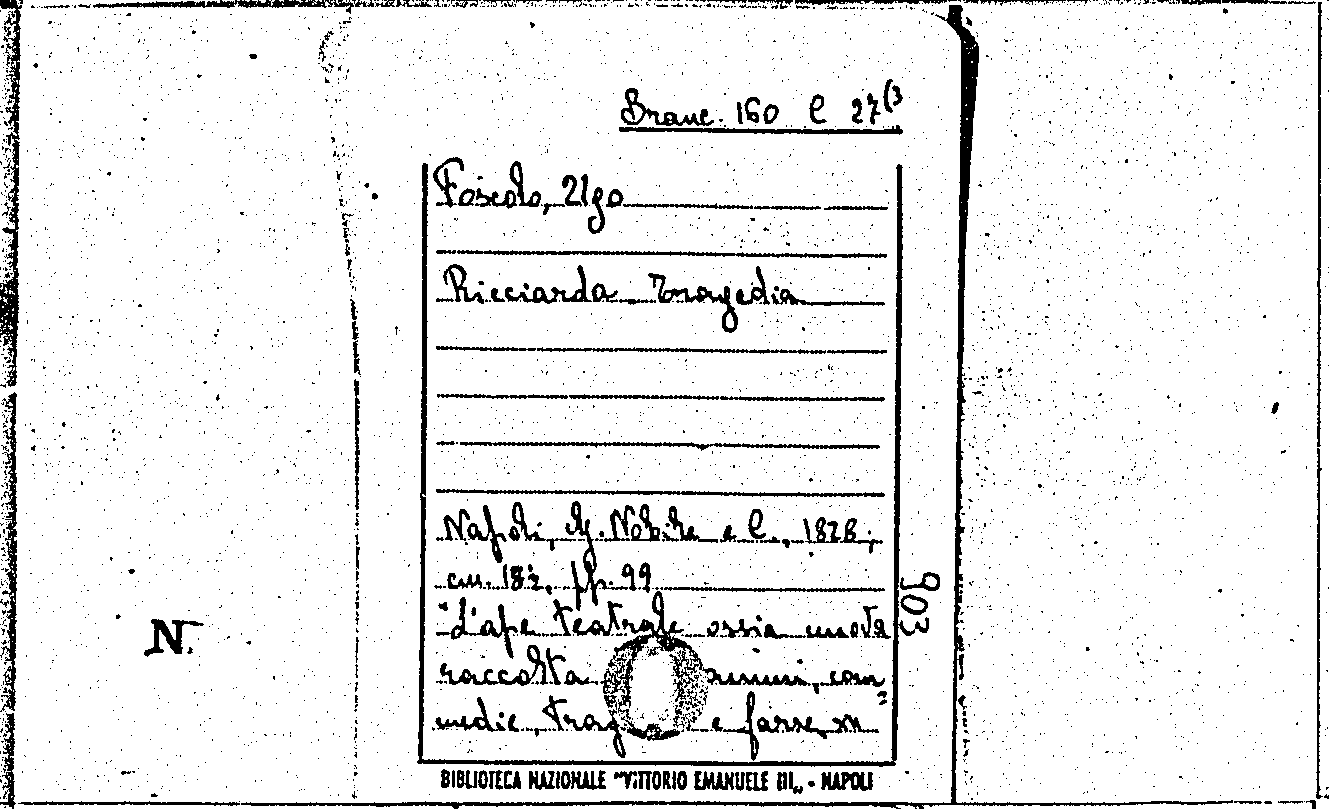 Branc. 160 C 27(3
Foscolo, Ugo
Ricciarda. Tragedia
Napoli, G. Nobile e C., 1828;
cm. 18½, pp. 99
"L'ape teatrale ossia nuova
raccolta com=
medie, trag e farse, n
903
N.
BIBLIOTECA NAZIONALE "VITTORIO EMANUELE III„ - NAPOLI